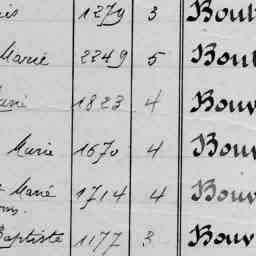 1279 3 Boul
Marie 2249 5 Bout
Marie 1823 4 Bouv
Marie 1670 4 Bouv
Marie 1714 4 Bouv
Baptiste 1177 3 Bouv